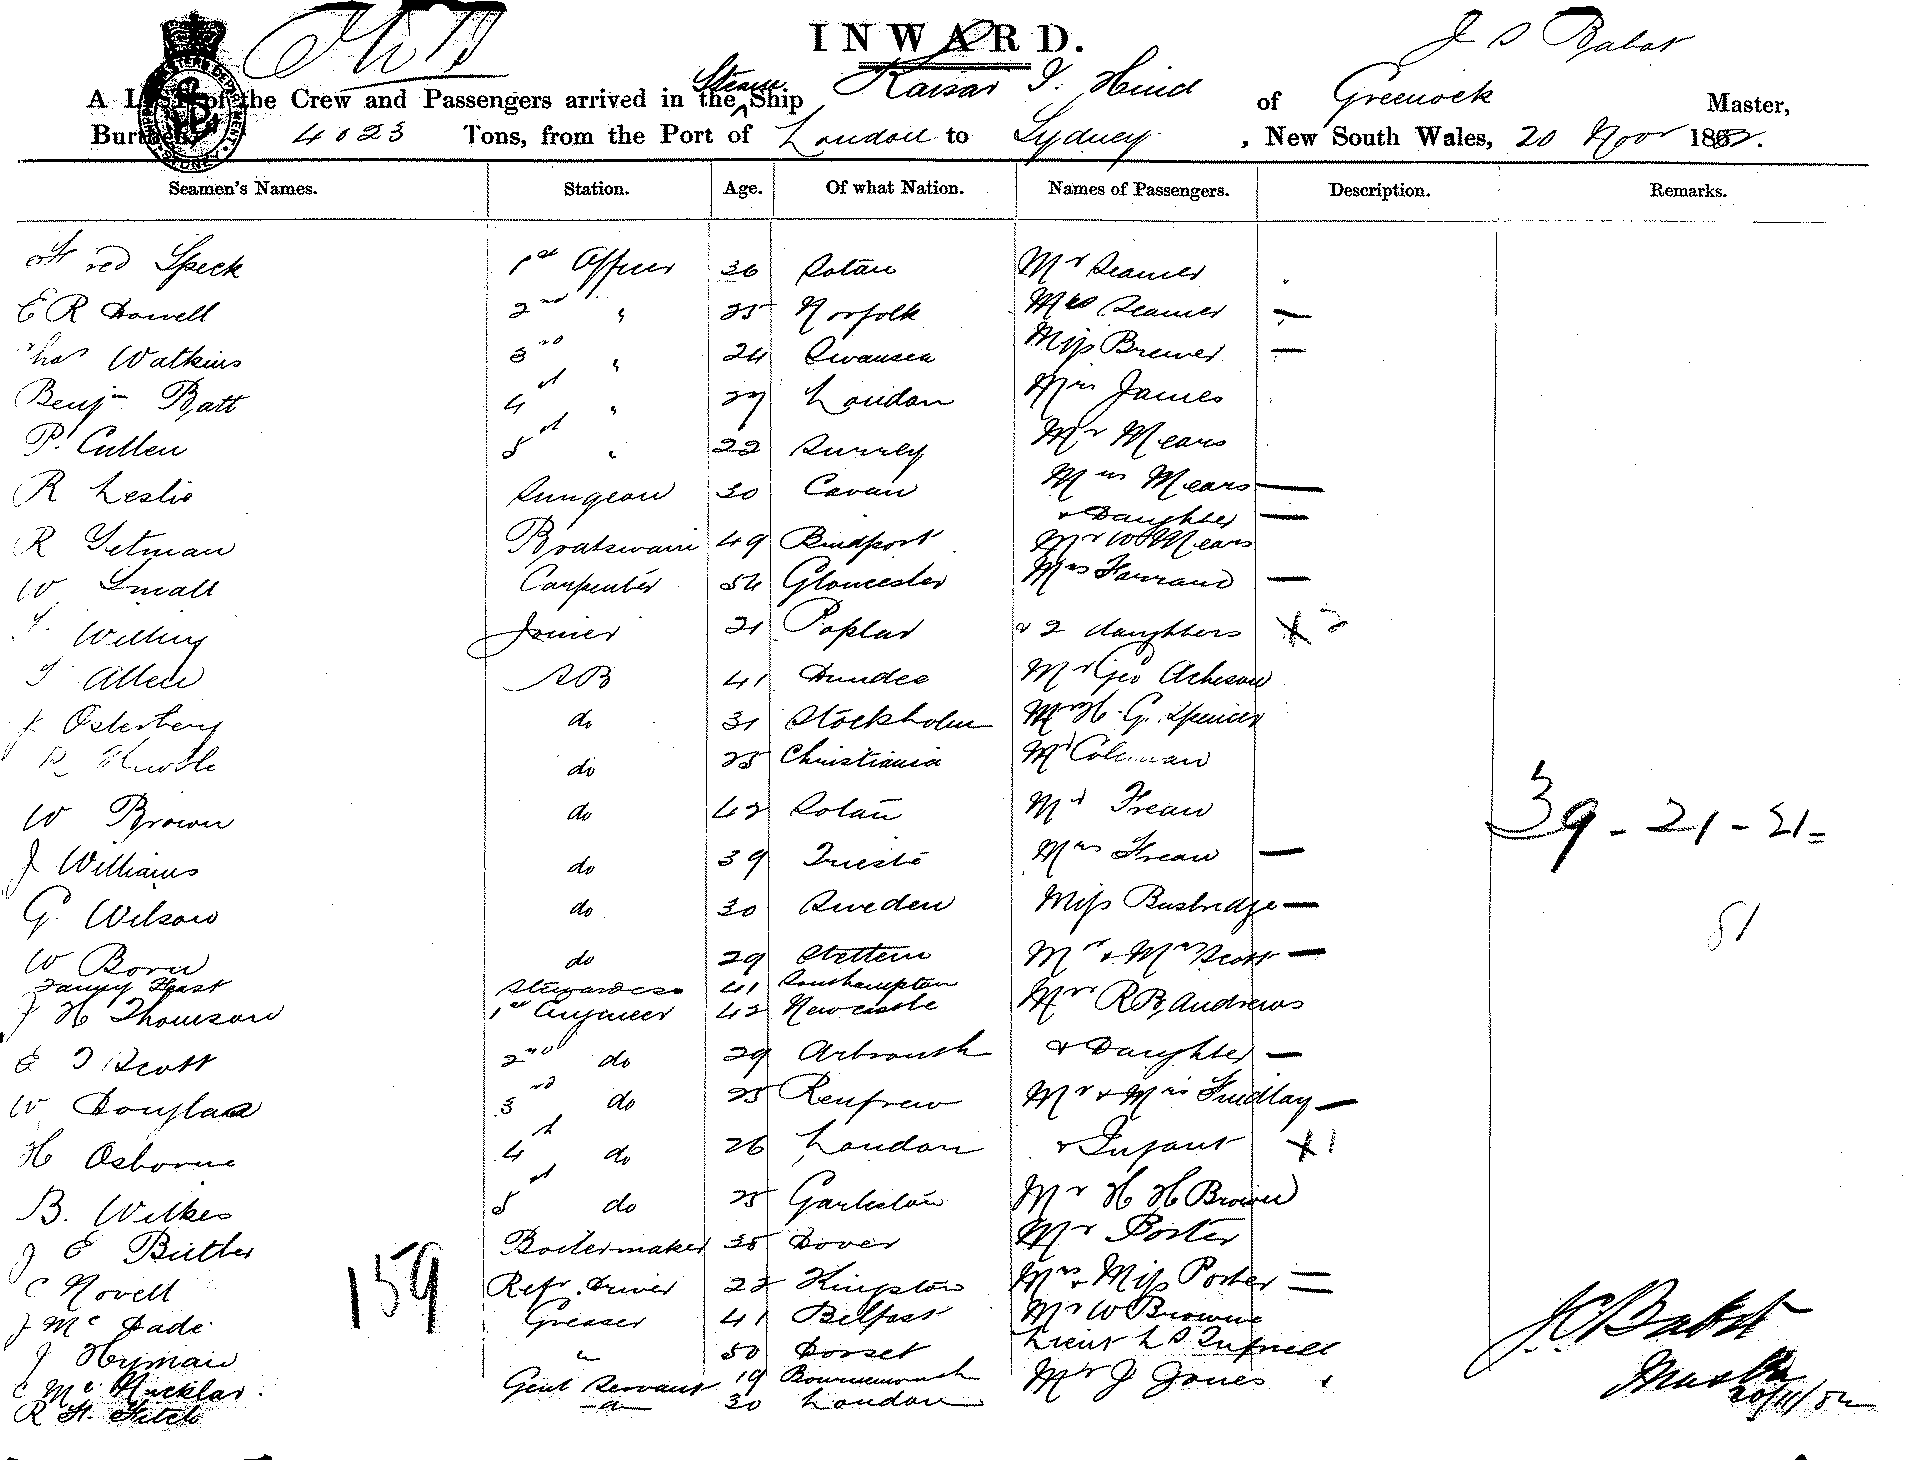 INWARD.
J S Babot
A List of the Crew and Passengers arrived in the Steam Ship Kaisar I. Hind of Greenock Master,
Burthen 4023 Tons, from the Port of London to Sydney, New South Wales, 20 Novr 1882.
Seamen's Names. Station. Age. Of what Nation. Names of Passengers. Description. Remarks.
Speck 1st Officer 36 Mr Seamer
E R Dowell 2nd " 25 Norfolk Mrs Seamer —
Thos Watkins 3rd " 24 Swansea Miss Brewer —
Benj Batt 4th " 27 London Mrs James
P. Cullen 5th " 22 Surrey Mr Mears
R Leslie Surgeon 30 Cavan Mrs Mears —
& Daughter —
R Yetman Boatswain 49 Bridport Mr W Mears
W Small Carpenter 54 Gloucester Mrs Farrand —
T. Willing Joiner 21 Poplar & 2 daughters X 2
T Allen AB 41 Dundee Mr Geo Acheson
J. Osterberg do 31 Stockholm Mr H. G. Spencer
R do 25 Christiania Mr Coleman
W Brown do 42 Mr Frean
39 - 21 - 21 =
J Williams do 39 Trieste Mrs Frean —
G. Wilson do 30 Sweden Miss Busbridge —
81
W Born do 29 Stettin Mr & Mrs Scott —
Fanny Stewardess 41 Southampton
J H Thomson 1st Engineer 42 Newcastle Mrs R B Andrews
E T Scott 2nd do 29 Arbroath & Daughter —
W Douglas 3rd do 25 Renfrew Mr & Mrs Findlay —
H Osborne 4th do 26 London & Infant X 1
B. Wilkes 5th do 25 Garliston Mr H H Brown
J E Butler Boilermaker 35 Dover Mr Porter
159
C Novell Refr. Driver 22 Kingston Mrs & Miss Porter =
J McDade Greaser 41 Belfast Mr W Browne
J Hyman " 50 Dorset Lieut L S Tufnell
C Genl Servant 19 Bournemouth Mr J Jones
R H. Fitch " 30 London
J. S. Babot
Master
20/11/82